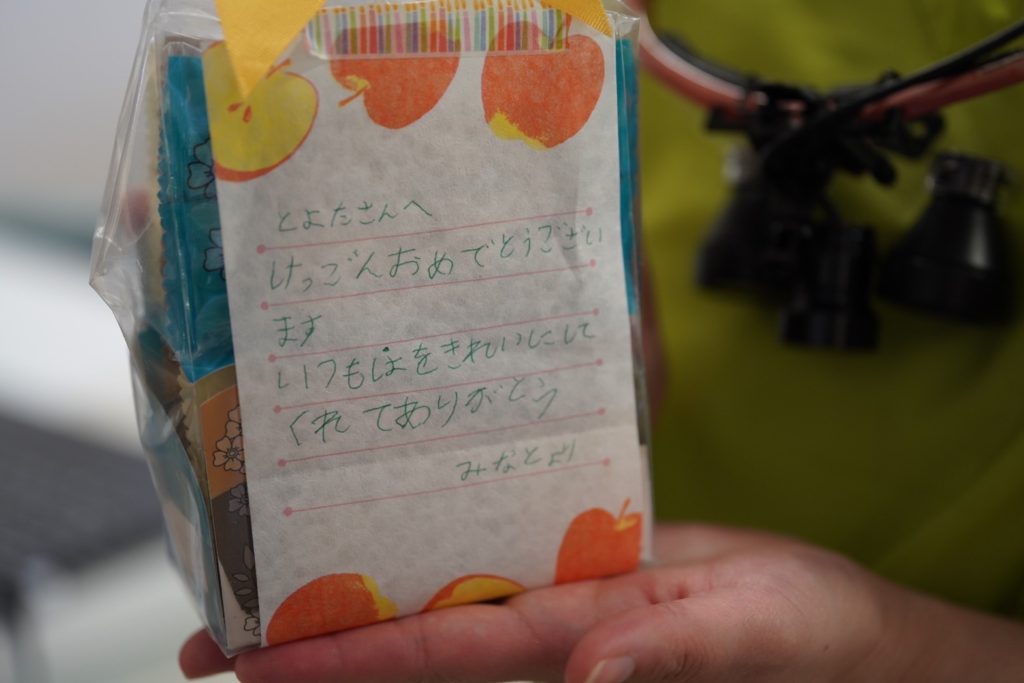 とよたさんへ
けっごんおめでとうござい
ます
いつもはをきれいにして
くれてありがとう
みなとより